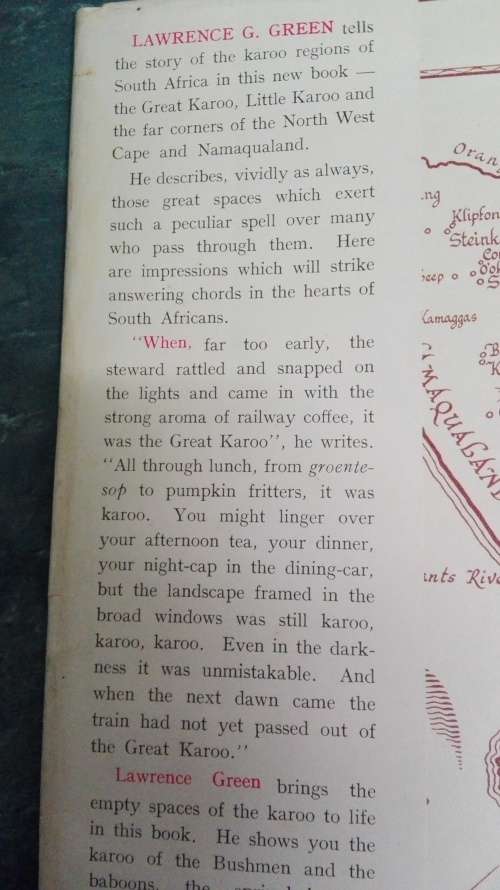 LAWRENCE G. GREEN tells
the story of the karoo regions of
South Africa in this new book —
the Great Karoo, Little Karoo and
the far corners of the North West
Cape and Namaqualand.
He describes, vividly as always,
those great spaces which exert
such a peculiar spell over many
who pass through them. Here
are impressions which will strike
answering chords in the hearts of
South Africans.
"When, far too early, the
steward rattled and snapped on
the lights and came in with the
strong aroma of railway coffee, it
was the Great Karoo", he writes.
"All through lunch, from groente-
sop to pumpkin fritters, it was
karoo. You might linger over
your afternoon tea, your dinner,
your night-cap in the dining-car,
but the landscape framed in the
broad windows was still karoo,
karoo, karoo. Even in the dark-
ness it was unmistakable. And
when the next dawn came the
train had not yet passed out of
the Great Karoo."
Lawrence Green brings the
empty spaces of the karoo to life
in this book. He shows you the
karoo of the Bushmen and the
baboons, the
Oran
ng
Klipfon
Steink
eep
Kamaggas
MAQUALAND
ants Rive